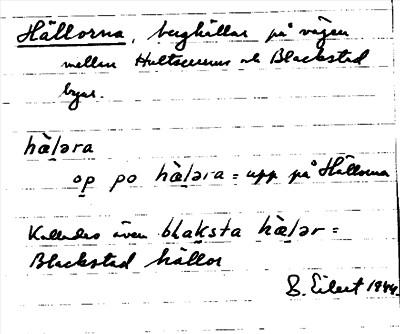 Hällorna, berghällar på vägen
mellan Hultserums och Blackstad
byar.
hæ̀lǝra
op po hæ̀lǝra = upp på Hällorna
Kallades även blaksta hæ̀lǝr =
Blackstad hällor
B. Eilert 1944.